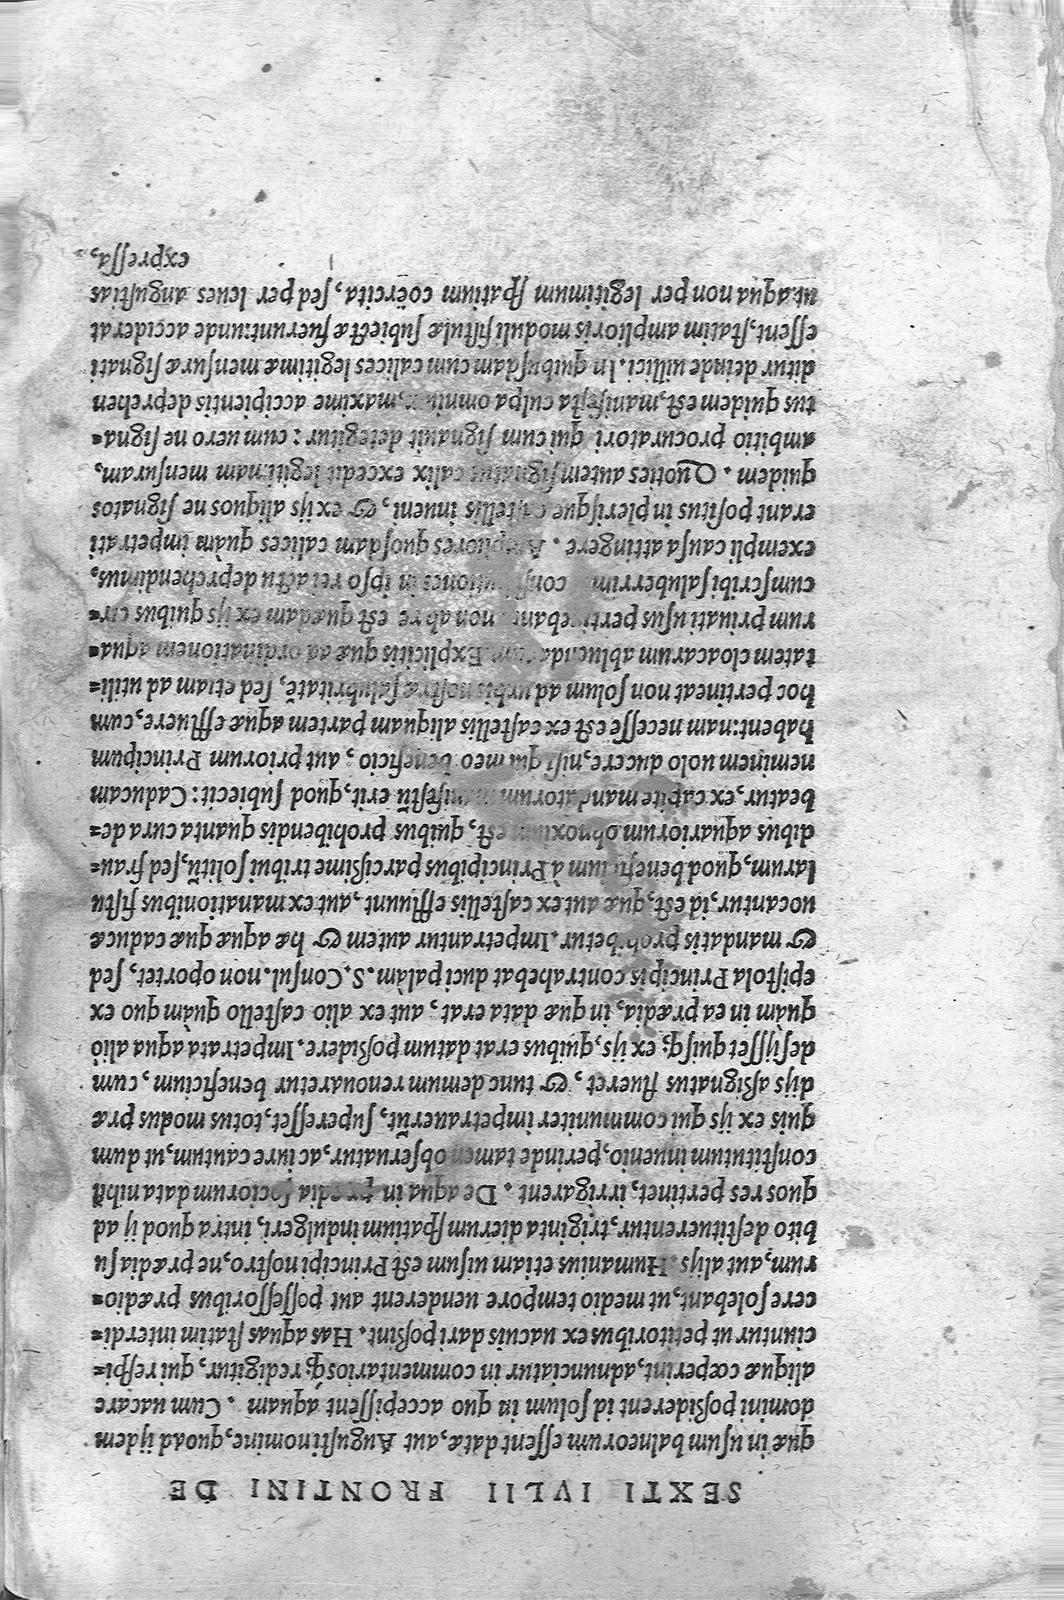 SEXTI IVLII FRONTINI DE
quæ in usum balneorum essent datæ, aut Augusti nomine, quoad ijdem
domini poßiderent id solum in quo accepissent aquam. Cum uacare
aliquæ cœperint, adnunciatur in commentariosq́; redigitur, qui respi-
ciuntur ut petitoribus ex uacuis dari poßint. Has aquas statim interdi-
cere solebant, ut medio tempore uenderent aut possessoribus prædio-
rum, aut alijs. Humanius etiam uisum est Principi nostro, ne prædia su
bito destituerentur, triginta dierum spatium indulgeri, intra quod ij ad
quos res pertinet, irrigarent. De aqua in prædia sociorum data nihil
constitutum inuenio, perinde tamen obseruatur, ac iure cautum, ut dum
quis ex ijs qui communiter impetrauerūt, superesset, totus modus præ
dijs aßignatus flueret, & tunc demum renouaretur beneficium, cum
desijsset quisq; ex ijs, quibus erat datum poßidere. Impetrata aqua aliò
quàm in ea prædia, in quæ data erat, aut ex alio castello quàm quo ex
epistola Principis contrahebat duci palàm. S. Consul. non oportet, sed
& mandatis prohibetur. Impetrantur autem & hæ aquæ quæ caducæ
uocantur, id est, quæ aut ex castellis effluunt, aut ex manationibus fistu
larum, quod beneficium à Principibus parcißime tribui solitū, sed frau-
dibus aquariorum obnoxium est, quibus prohibendis quanta cura de-
beatur, ex capite mandatorum manifestū erit, quod subiecit: Caducam
neminem uolo ducere, nisi qui meo beneficio, aut priorum Principum
habent: nam necesse est ex castellis aliquam partem aquæ effluere, cum
hoc pertineat non solum ad urbis nostræ salubritatē, sed etiam ad utili-
tatem cloacarum abluendarum. Explicitis quæ ad ordinationem aqua-
rum priuati usus pertinebant non ab re est quædam ex ijs quibus cir-
cumscribi saluberrim constitutiones in ipso rei actu deprehendimus,
exempli causa attingere. Ampliores quosdam calices quàm impetrati
erant positus in plerisque castellis inueni, & ex ijs aliquos ne signatos
quidem. Quoties autem signatus calix excedit legitimam mensuram,
ambitio procuratori qui cum signauit detegitur: cum uero ne signa-
tus quidem est, manifesta culpa omnium, maxime accipientis deprehen
ditur deinde uillici. In quibusdam cum calices legitimæ mensuræ signati
essent, statim amplioris moduli fistulæ subiectæ fuerunt: unde acciderat
ut aqua non per legitimum spatium coërcita, sed per leues angustias
expressa,